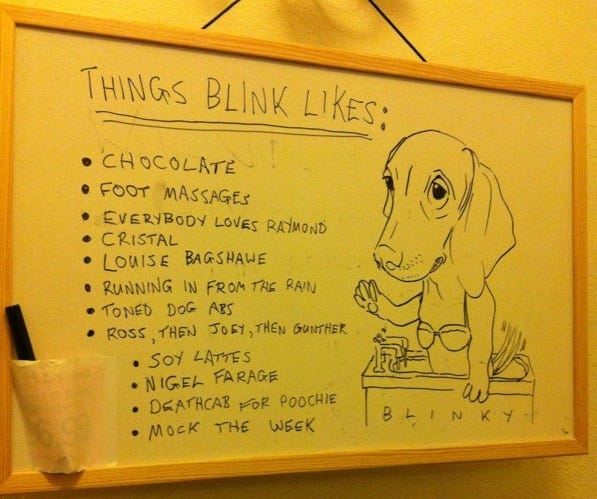 THINGS BLINK LIKES:
• CHOCOLATE
• FOOT MASSAGES
• EVERYBODY LOVES RAYMOND
• CRISTAL
• LOUISE BAGSHAWE
• RUNNING IN FROM THE RAIN
• TONED DOG ABS
• ROSS, THEN JOEY, THEN GUNTHER
• SOY LATTES
• NIGEL FARAGE
• DEATHCAB FOR POOCHIE
• MOCK THE WEEK
BLINKY